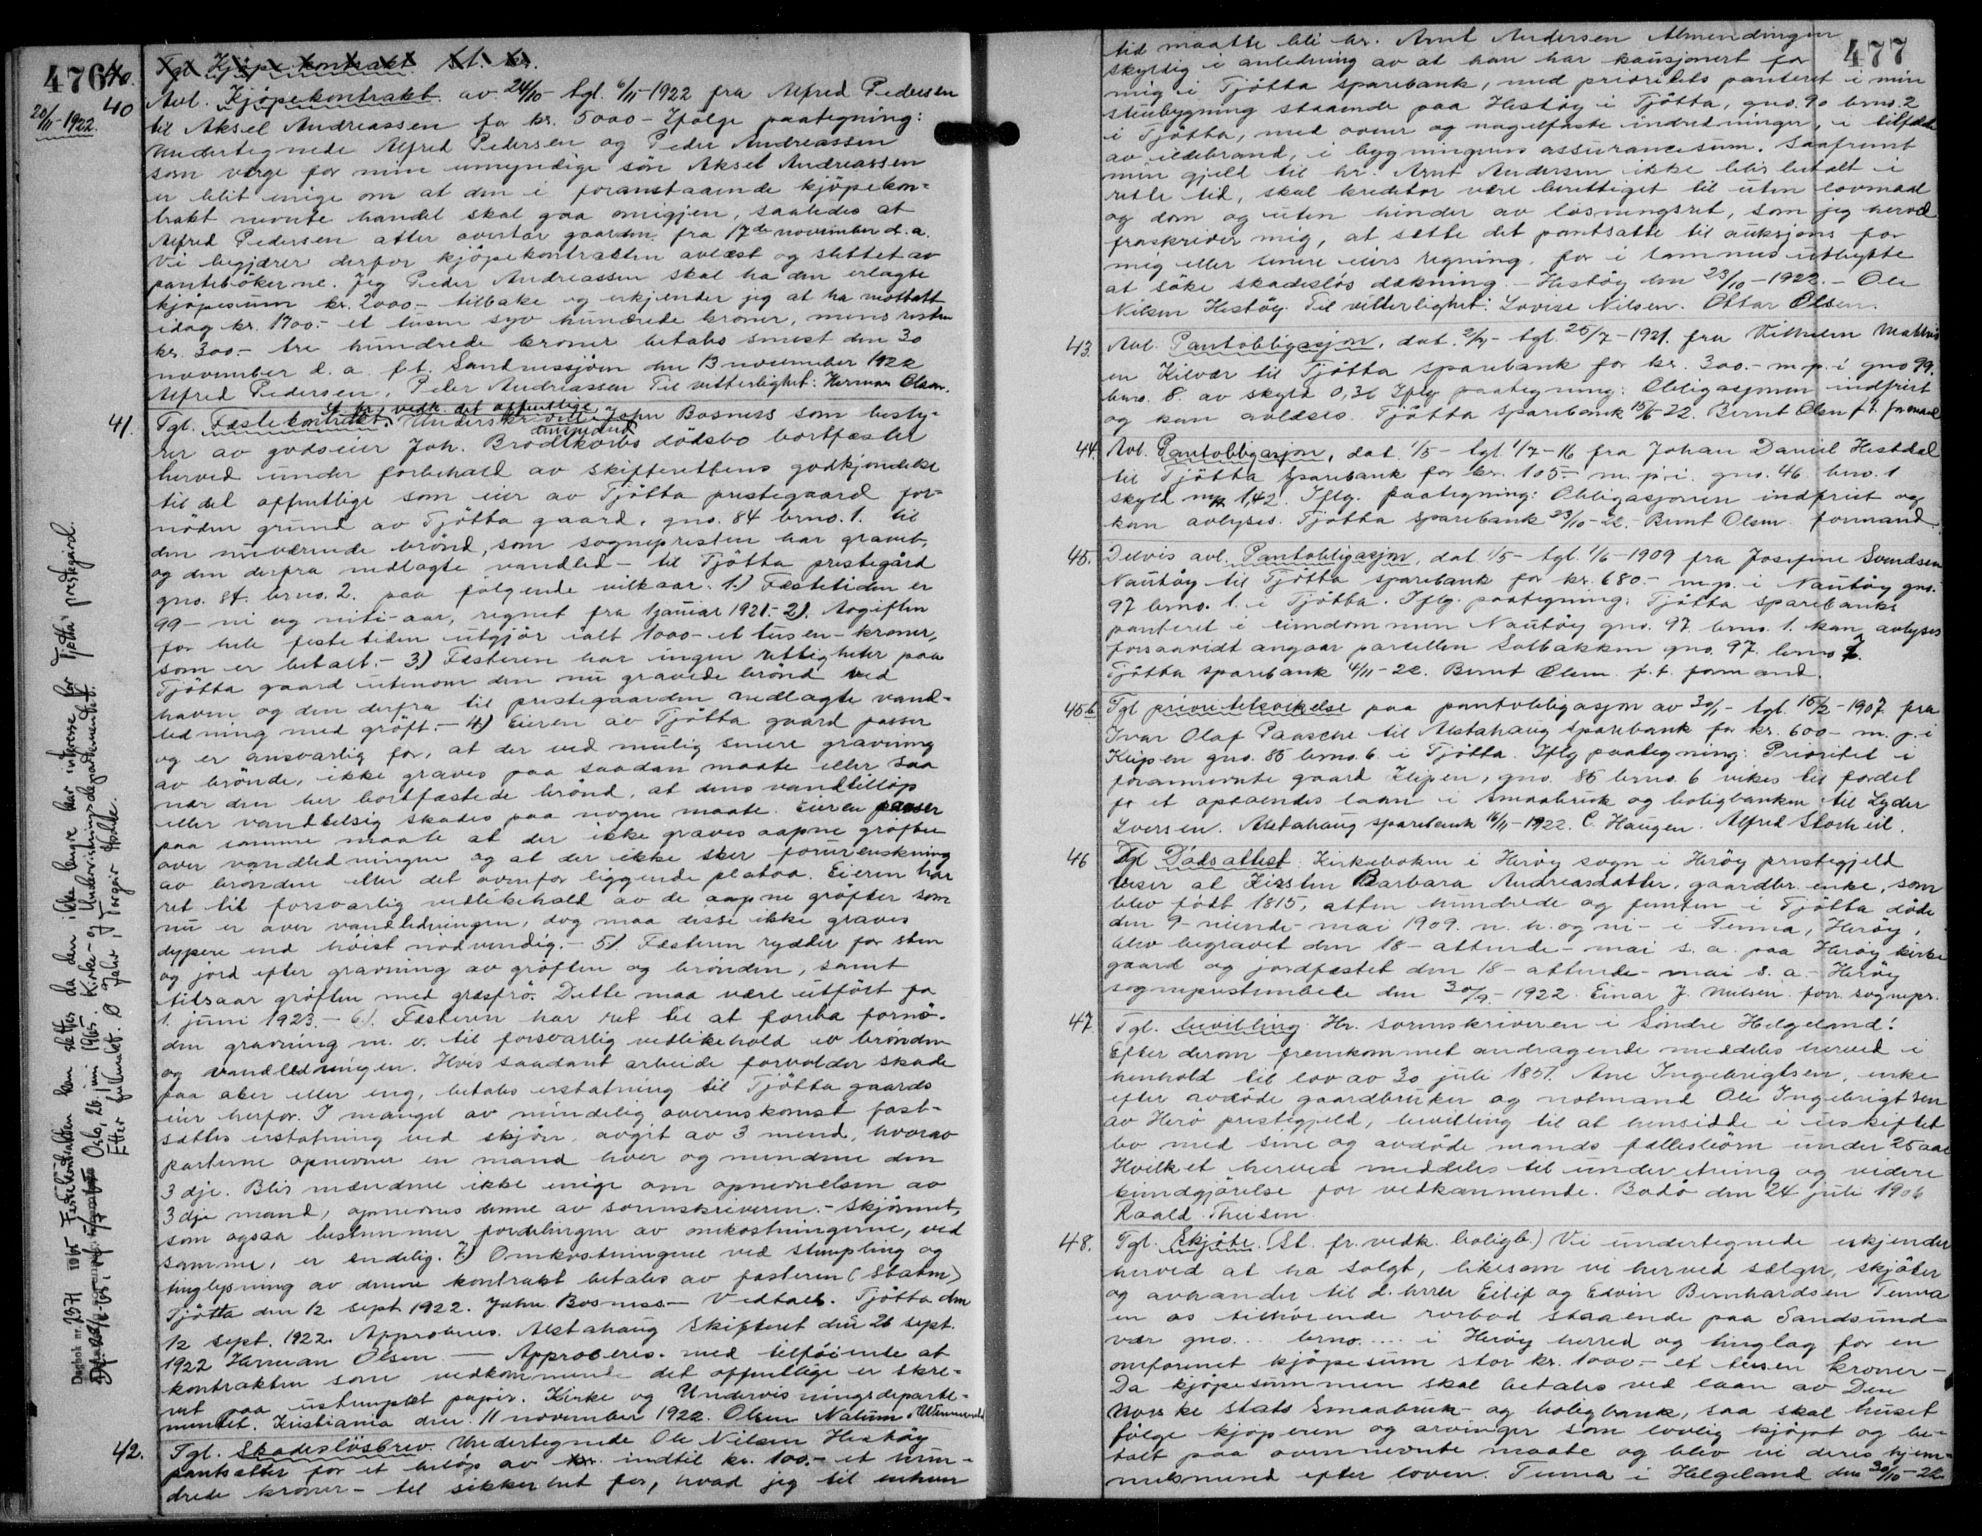 476
40.
Tgl. Kjöpekontrakt St. kr.
20/11-1922.
40
Avl. Kjöpekontrakt av 24/10 tgl. 6/11-1922 fra Alfred Pedersen
til Aksel Andreassen for kr. 5000- Ifölge paategning:
Undertegnede Alfred Pedersen og Peder Andreassen
som verge for min umyndige sön Aksel Andreassen
er blit enige om at den i foranstaaende kjöpekon-
trakt nevnte handel skal gaa omigjen, saaledes at
Alfred Pedersen atter overtar gaarden fra 17de november d.a.
Vi begjærer derfor kjöpekontrakten avlæst og slettet av
pantebökerne. Jeg Peder Andreassen skal ha den erlagte
kjöpesum kr. 2000.- tilbake og erkjender jeg at ha mottatt
idag kr. 1700.- et tusen syv hundrede kroner, mens resten
kr. 300.- tre hundrede kroner betales senest den 30
november d.a. p.t. Sandnessjöen den 13 november 1922
Alfred Pedersen, Peder Andreassen Til vitterlighet: Herman Olsen.
41.
St. fr. vedk. det offentlige
Tgl. Festekontrakt. Underskrevne John Bosness som besty-
rer av godseier Joh. Brodtkorbs dödsbo bortfæster
herved under forbehold av skifterettens godkjendelse
til det offentlige som eier av Tjötta prestegaard for-
nöden grund av Tjötta gaard, gno. 84 brno. 1. til
den nuværende brönd, som sognepresten har gravet,
og den derfra nedlagte vandled- til Tjötta prestegård
gno. 84. brno. 2. paa fölgende vilkaar: 1.) Festetiden er
99- ni og niti-aar, regnet fra 1 januar 1921- 2). Avgiften
for hele festetiden utgjör ialt 1000- et tusen- kroner,
som er betalt.- 3.) Fæsteren har ingen rettigheter paa
Tjötta gaard utenom den nu gravede brönd ved
haven og den derfra til prestegaarden nedlagte vand-
ledning med gröft.- 4.) Eieren av Tjötta gaard passer
og er ansvarlig for, at der ved mulig senere gravning
av brönde, ikke graves paa saadan maate eller saa
nær den her bortfæstede brönd, at dens vandtillöp
eller vandtilsig skades paa nogen maate. Eieren passer
paa samme maate at der ikke graves aapne gröfter
over vandledningen og at der ikke sker forurenskning
av brönden eller det ovenfor liggende platoa. Eieren har
ret til forsvarlig vedlikehold av de aapne gröfter som
nu er over vandledningen, dog maa disse ikke graves
dypere end höist nödvendig.- 5). Fæsteren rydder for sten
og jord efter gravning av gröften og brönden, samt
tilsaar gröften med græsfrö. Dette maa være utfört for
1. juni 1923.- 6). Fæsteren har ret til at foreta fornö-
den gravning m.v. til forsvarlig vedlikehold av brönden
og vandledningen. Hvis saadant arbeide forvolder skade
paa aker eller eng, betales erstatning til Tjötta gaards
eier herfor. I mangel av mindelig overenskomst fast-
sættes erstatning ved skjön avgit av 3 mend, hvorav
parterne opnevner en mand hver og mændene den
3dje. Blir mændene ikke enige om opnevnelsen av
3dje mand, opnevnes denne av sorenskriveren.- Skjönnet,
som ogsaa bestemmer fordelingen av omkostningerne, ved
samme, er endelig. 7.) Omkostningene ved stempling og
tinglysning av denne kontrakt betales av fæsteren (Staten)
Tjötta den 12 sept 1922. John Bosness- Vedtaes. Tjötta den
12 sept. 1922. Approberes. Alstahaug Skifteret den 26 sept.
1922 Herman Olsen - Approberes. med tilföiende at
kontrakten som vedkommende det offentlige er skre-
vet paa ustemplet papir. Kirke og Undervisningsdeparte-
mentet. Kristiania den 11 november 1922. Olsen Nalum.
42.
Tgl. Skadeslösbrev. Undertegnede Ole Nilsen Hestöy
pantsætter for et belöp av indtil kr. 100.- et hun-
drede kroner- til sikkerhet for, hvad jeg til enhver
Dagbok nr. 2371 1965 Festekontrakten kan slettes da den ikke lenger har interesse for Tjøtta prestegård.
Oslo, 26. juni 1965. Kirke- og Undervisningsdepartementet.
Etter fullmakt. O Jahr, Torgeir Holte.
477
tid maatte bli hr. Arnt Andersen Almendingen
skyldig i anledning av at han har kausjonert for
mig i Tjötta sparebank, med prioritets panteret i min
stuebygning staaende paa Hestöy i Tjötta, gno. 90 brno. 2
i Tjötta, med ovner og nagelfaste indredninger, i tilfælde
av ildebrand, i bygningens assurancesum. Saafremt
min gjeld til hr. Arnt Andersen ikke blir betalt i
rette tid, skal kreditor være berettiget til uten lovmaal
og dom og uten hinder av lösningsret, som jeg herved
fraskriver mig, at sette det pantsatte til auksjons for
mig eller senere eiers regning, for i dennes utbytte
at söke skadeslös dækning. - Hestöy den 23/10-1922.- Ole
Nilsen Hestöy. Til vitterlighet: Lovise Nilsen. Ottar Olsen.
43.
Avl. Pantobligasjon, dat. 2/7- tgl. 25/7-1921. fra Vilhelm Mathis
en Kilvær til Tjötta sparebank for kr. 300.- m.p. i gno 99.
brno. 8 av skyld 0,36 Iflg. paategning: Obligasjonen indfriet
og kan avlæses. Tjötta sparebank 15/6-22. Bernt Olsen f.t. formand
44.
Avl. Pantobligasjon, dat 1/5- tgl 1/7-16 fra Johan Daniel Hestdal
til Tjötta Sparebank for kr. 105.- m.p. i. gno. 46 brno. 1
skyld m 1,42. Iflg. paategning: Obligasjonen indfriet og
kan avlyses. Tjötta sparebank 23/10-22.- Bernt Olsen formand.
45.
Delvis avl. Pantobligasjon, dat 1/5- tgl. 1/6-1909 fra Josefine Svendsen
Nautöy til Tjötta sparebank for kr. 680.- m.p. i Nautöy gno.
97 brno. 1. i Tjötta. Iflg. paategning: Tjötta sparebanks
panteret i eiendommen Nautöy gno. 97 brno. 1. kan avlyses
forsaavidt angaar parsellen Solbakken gno. 97. brno 2.
Tjötta sparebank 4/11-22. Bernt Olsen f.t. formand.
45b
Tgl prioritetsvikelse paa pantobligasjon av 30/1- tgl. 15/2-1907 fra
Ivar Olaf Paasche til Alstahaug sparebank for kr. 600- m.p. i
Klipen gno. 85 brno. 6 i Tjötta. Iflg paategning: Prioritet i
forannevnte gaard Klipen, gno. 85 brno. 6 vikes til fordel
for et optaendes laan i Smaabruk og boligbanken til Lyder
Iversen. Alstahaug sparebank 16/11-1922. C. Haugen. Alfred Storheil.
46
Tgl Dödsattest. Kirkeboken i Heröy sogn i Heröy prestegjeld
viser at Kirsten Barbara Andreasdatter, gaardbr. enke, som
blev födt 1815, atten hundrede og femten i Tjötta döde
den 9- niende- mai 1909. n. h. og ni- i Tenna, Heröy,
blev begravet den 18- attende- mai s.a. paa Heröy kirke
gaard og jordfæstet den 18- attende- mai s.a.- Heröy
sogneprestembede den 30/9-1922. Einar J. Nielsen. forr. sognepr.
47
Tgl. bevilling. Hr. sorenskriveren i Söndre Helgeland!
Efter derom fremkommet andragende meddeles herved i
henhold til lov av 30 juli 1851. Ane Ingebrigtsen, enke
efter avdöde gaardbruker og notmand Ole Ingebrigtsen
av Herö prestegjeld, bevilling til at hensidde i uskiftet
bo med sine og avdöde mands fellesbörn under 25 aar
Hvilket herved meddeles til underretning og videre
kundgjörelse for vedkommende. Bodö den 24 juli 1906
Roald Theisen.
48.
Tgl. Skjöte. (St. fr. vedk. boligb.) Vi undertegnede erkjender
herved at ha solgt, likesom vi herved sælger, skjöter
og avhænder til d.herrer Eilif og Edvin Bernhardsen Tenna
en os tilhörende rorbod staaende paa Sandsund-
vær gno... brno..... i Heröy herred og tinglag for en
omforenet kjöpesum stor kr. 1000.- et tusen kroner-
Da kjöpesummen skal betales ved laan av Den
norske stats smaabruk- og boligbank, saa skal huset
fölge kjöperen og arvinger som lovlig kjöpt og be-
talt paa ovennevnte maate og blir vi deres hjem-
melsmend efter loven. Tenna i Helgeland den 30/10-22